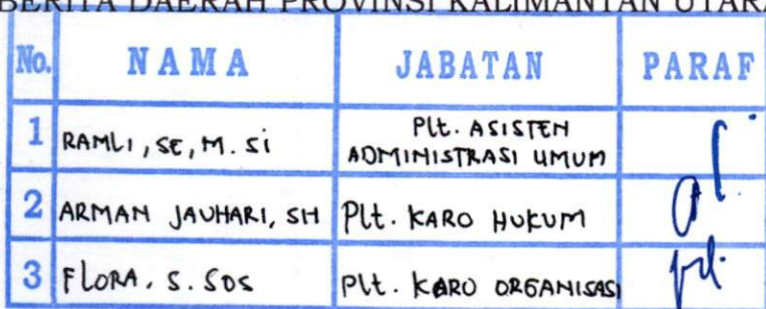 BERITA DAERAH PROVINSI KALIMANTAN UTARA
No. NAMA JABATAN PARAF
1 RAMLI, SE, M. Si Plt. ASISTEN
ADMINISTRASI UMUM
2 ARMAN JAUHARI, SH Plt. KARO HUKUM
3 FLORA. S. SOS Plt. KARO ORGANISASI